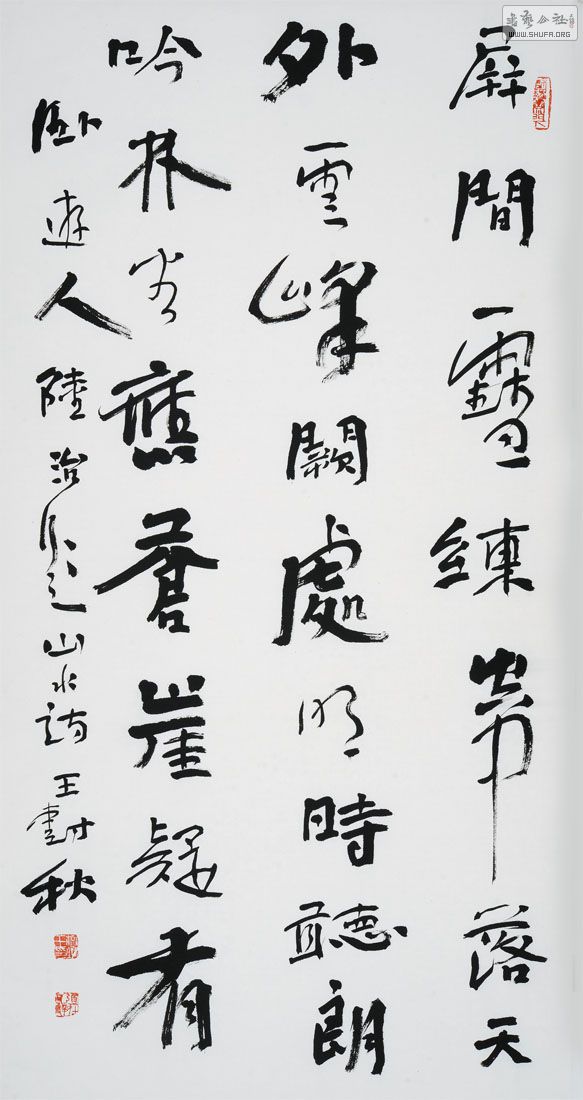 屏間練帶落天
外雲峰闕處明時聽朗
吟林應蒼崖疑有
臥遊人陸治題山水詩王樹秋
書藝公社
WWW.SHUFA.ORG